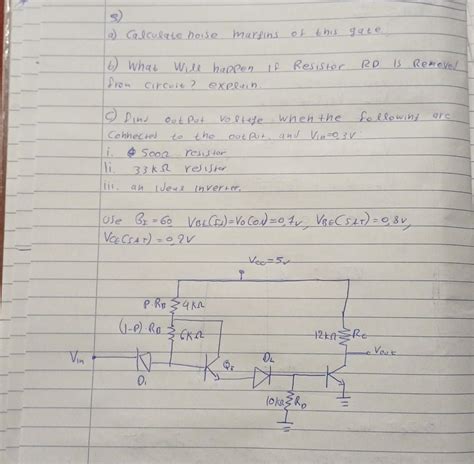 Q)
a) Calculate noise margins of this gate.
b) What Will happen if Resistor RD Is Removed
from circuit? explain
c) find output voltage when the following are
Connected to the output and Vin=0,3V
i. 500Ω resistor
ii. 33kΩ resistor
iii. an ideal inverter.
Use βF=60 VBE(FA)=VD(ON)=0,7V, VBE(SAT)=0,8V,
VCE(SAT)=0,2V
Vcc=5V
P.RB 4kΩ
(1-P) RB 6kΩ
12kΩ RC
Vin
Vout
D1
D2
10kΩ RD